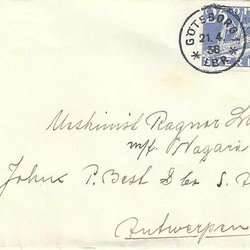 GÖTEBORG
21.4.
38
LBR
Maskinist Ragnar
m/s Wagari
Johns P. Best & Co S.
Antwerpen